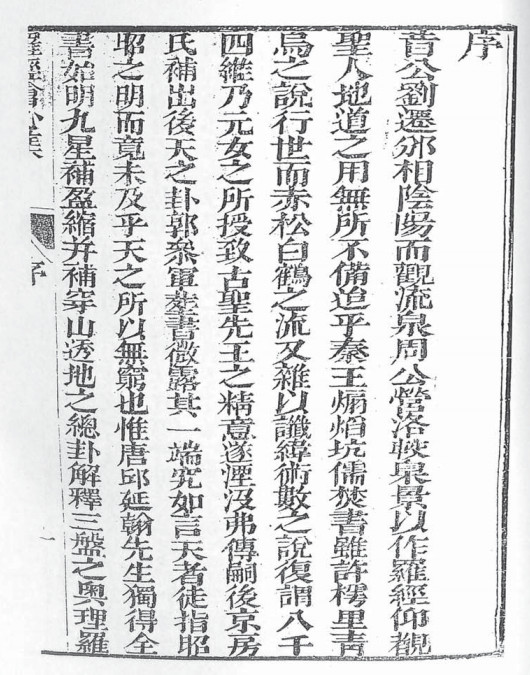 序
昔公劉遷邠相陰陽而觀流泉周公營洛較臬景以作羅經仰觀
聖人地道之用無所不備迨乎秦王煽焰坑儒焚書雖許樗里青
烏之說行世而赤松白鶴之流又雜以讖緯術數之說復謂八千
四維乃元女之所授致古聖先王之精意遂湮沒弗傳嗣後京房
氏補出後天之卦郭叅軍塟書微露其一端究如言天者徒指昭
昭之明而竟未及乎天之所以無窮也惟唐邱延翰先生獨得全
書始明九星補盈縮并補穿山透地之總卦解釋三盤之奧理羅
羅經
序